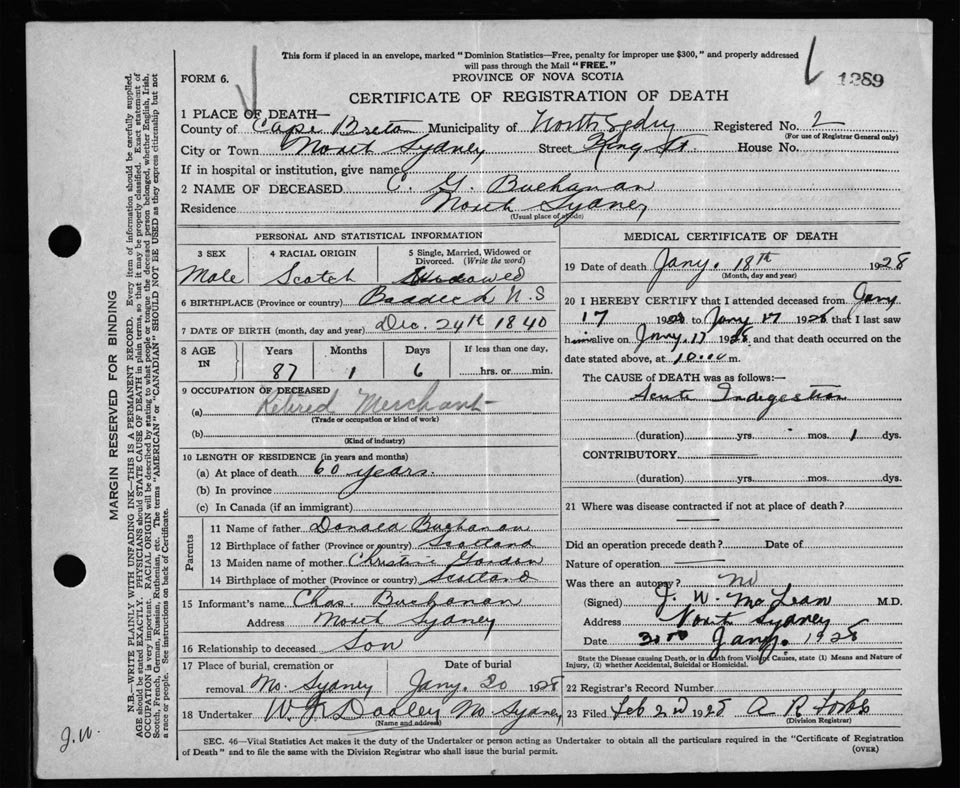 This form if placed in an envelope, marked "Dominion Statistics—Free, penalty for improper use $300," and properly addressed
will pass through the Mail "FREE."
FORM 6.
PROVINCE OF NOVA SCOTIA
1289
CERTIFICATE OF REGISTRATION OF DEATH
1 PLACE OF DEATH—
County of Cape Breton Municipality of North Sydney Registered No. 2
(For use of Registrar General only)
City or Town North Sydney Street King St. House No.
If in hospital or institution, give name
2 NAME OF DECEASED C. G. Buchanan
Residence North Sydney
(Usual place of abode)
PERSONAL AND STATISTICAL INFORMATION
3 SEX 4 RACIAL ORIGIN 5 Single, Married, Widowed or
Divorced. (Write the word)
Male Scotch Widowed
6 BIRTHPLACE (Province or country) Baddeck N.S
7 DATE OF BIRTH (month, day and year) Dec. 24th 1840
8 AGE IN Years Months Days If less than one day,
87 1 6 hrs. or min.
9 OCCUPATION OF DECEASED
(a) Retired Merchant
(Trade or occupation or kind of work)
(b)
(Kind of industry)
10 LENGTH OF RESIDENCE (in years and months)
(a) At place of death 60 years.
(b) In province
(c) In Canada (if an immigrant)
Parents
11 Name of father Donald Buchanan
12 Birthplace of father (Province or country) Scotland
13 Maiden name of mother Christine Gordon
14 Birthplace of mother (Province or country) Scotland
15 Informant's name Chas. Buchanan
Address North Sydney
16 Relationship to deceased Son
17 Place of burial, cremation or Date of burial
removal No. Sydney Jany. 20 1928
18 Undertaker W. J. Dooley No Sydney
(Name and address)
MEDICAL CERTIFICATE OF DEATH
19 Date of death Jany. 18th 1928
(Month, day and year)
20 I HEREBY CERTIFY that I attended deceased from Jany
17 1928 to Jany 17 1928 that I last saw
him alive on Jany. 17 1928, and that death occurred on the
date stated above, at 10.00 m.
The CAUSE of DEATH was as follows:—
Acute Indigestion
(duration) yrs. mos. 1 dys.
CONTRIBUTORY
(duration) yrs. mos. dys.
21 Where was disease contracted if not at place of death?
Did an operation precede death? Date of
Nature of operation
Was there an autopsy? No
(Signed) J. W. McLean M.D.
Address North Sydney
Date 30th Jany. 1928
State the Disease causing Death, or in death from Violent Causes, state (1) Means and Nature of
Injury, (2) whether Accidental, Suicidal or Homicidal.
22 Registrar's Record Number
23 Filed Feb 2nd 1928 A R Forbes
(Division Registrar)
SEC. 46—Vital Statistics Act makes it the duty of the Undertaker or person acting as Undertaker to obtain all the particulars required in the "Certificate of Registration
of Death" and to file the same with the Division Registrar who shall issue the burial permit.
(OVER)
MARGIN RESERVED FOR BINDING
N.B.—WRITE PLAINLY WITH UNFADING INK—THIS IS A PERMANENT RECORD. Every item of information should be carefully supplied.
AGE should be stated EXACTLY. PHYSICIANS should STATE CAUSE OF DEATH in plain terms, so that it may be properly classified. Exact statement of
OCCUPATION is very important. RACIAL ORIGIN will be described by stating to what people or tongue the deceased person belonged, whether English, Irish,
Scotch, French, German, Russian, Ruthenian, etc. The terms "AMERICAN" or "CANADIAN" SHOULD NOT BE USED as they express citizenship but not
a race or people. See instructions on back of Certificate.
J.W.